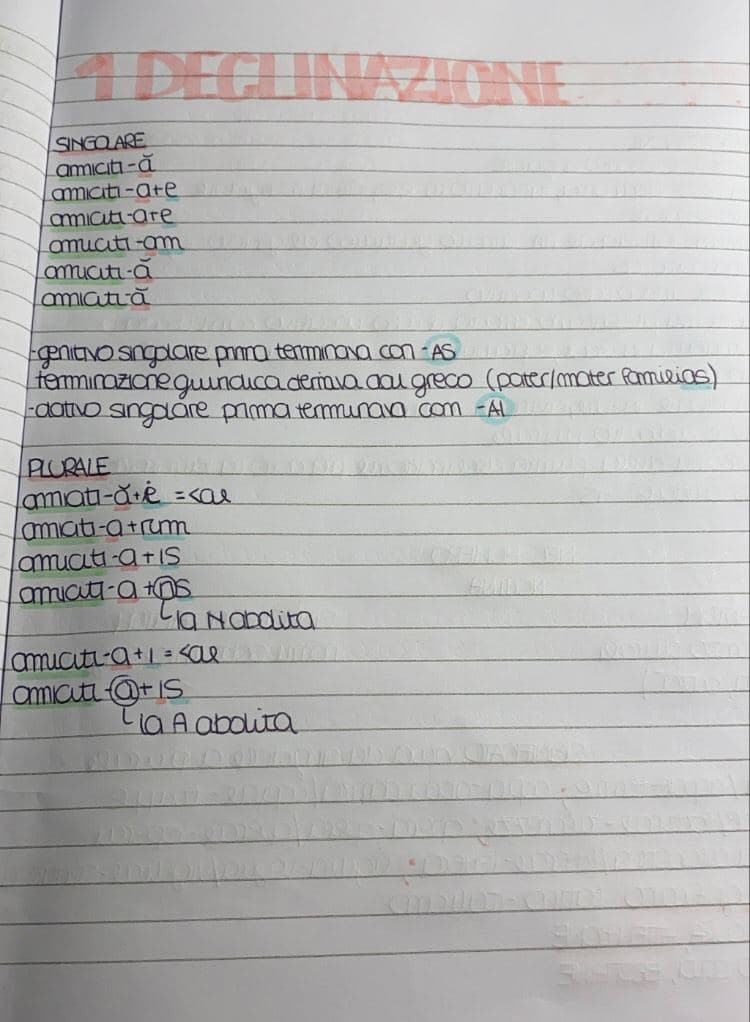 1 DECLINAZIONE
SINGOLARE
amiciti-ă
amiciti-a+e
amiciti-a+e
amiciti-am
amiciti-ă
amiciti-ă
-genitivo singolare prima terminava con -AS
terminazione giuridica deriava dal greco (pater/mater familias)
-dativo singolare prima terminava com -AI
PLURALE
amiciti-ă+ė =<ae
amiciti-a+rum
amiciti-a+is
amiciti-a+ns
la N abolita
amiciti-a+i =<ae
amiciti-a+is
la A abolita